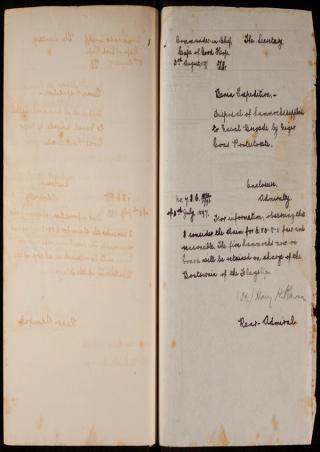 Commander in Chief, The Secretary
Cape of Good Hope.
5th August 97
Benin Expedition.-
Disposal of hammocks supplied
to Naval Brigade by Niger
Coast Protectorate.
Enclosure.
Admiralty.
of 8th July 1897.
For information, observing that
I consider the claim for £ fair and
reasonable. The five hammocks now on
board will be retained on charge of the
Boatswain of the Flagship.
Harry H. Rawson
Rear-Admiral.